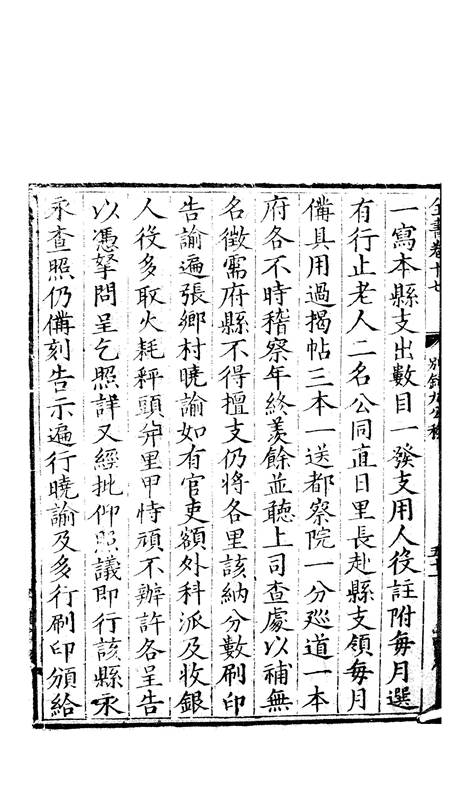 全書卷十七 別錄九公移 五十二
一寫本縣支出數目一發支用人役註附每月選
有行止老人二名公同直日里長赴縣支領每月
備具用過揭帖三本一送都察院一分廵道一本
府各不時稽察年終羨餘並聽上司查處以補無
名徵需府縣不得擅支仍將各里該納分數刷印
告諭遍張鄉村曉諭如有官吏額外科派及收銀
人役多取火耗秤頭并里甲恃頑不辦許各呈告
以憑拏問呈乞照詳又經批仰照議即行該縣永
永查照仍備刻告示遍行曉諭及多行刷印頒給